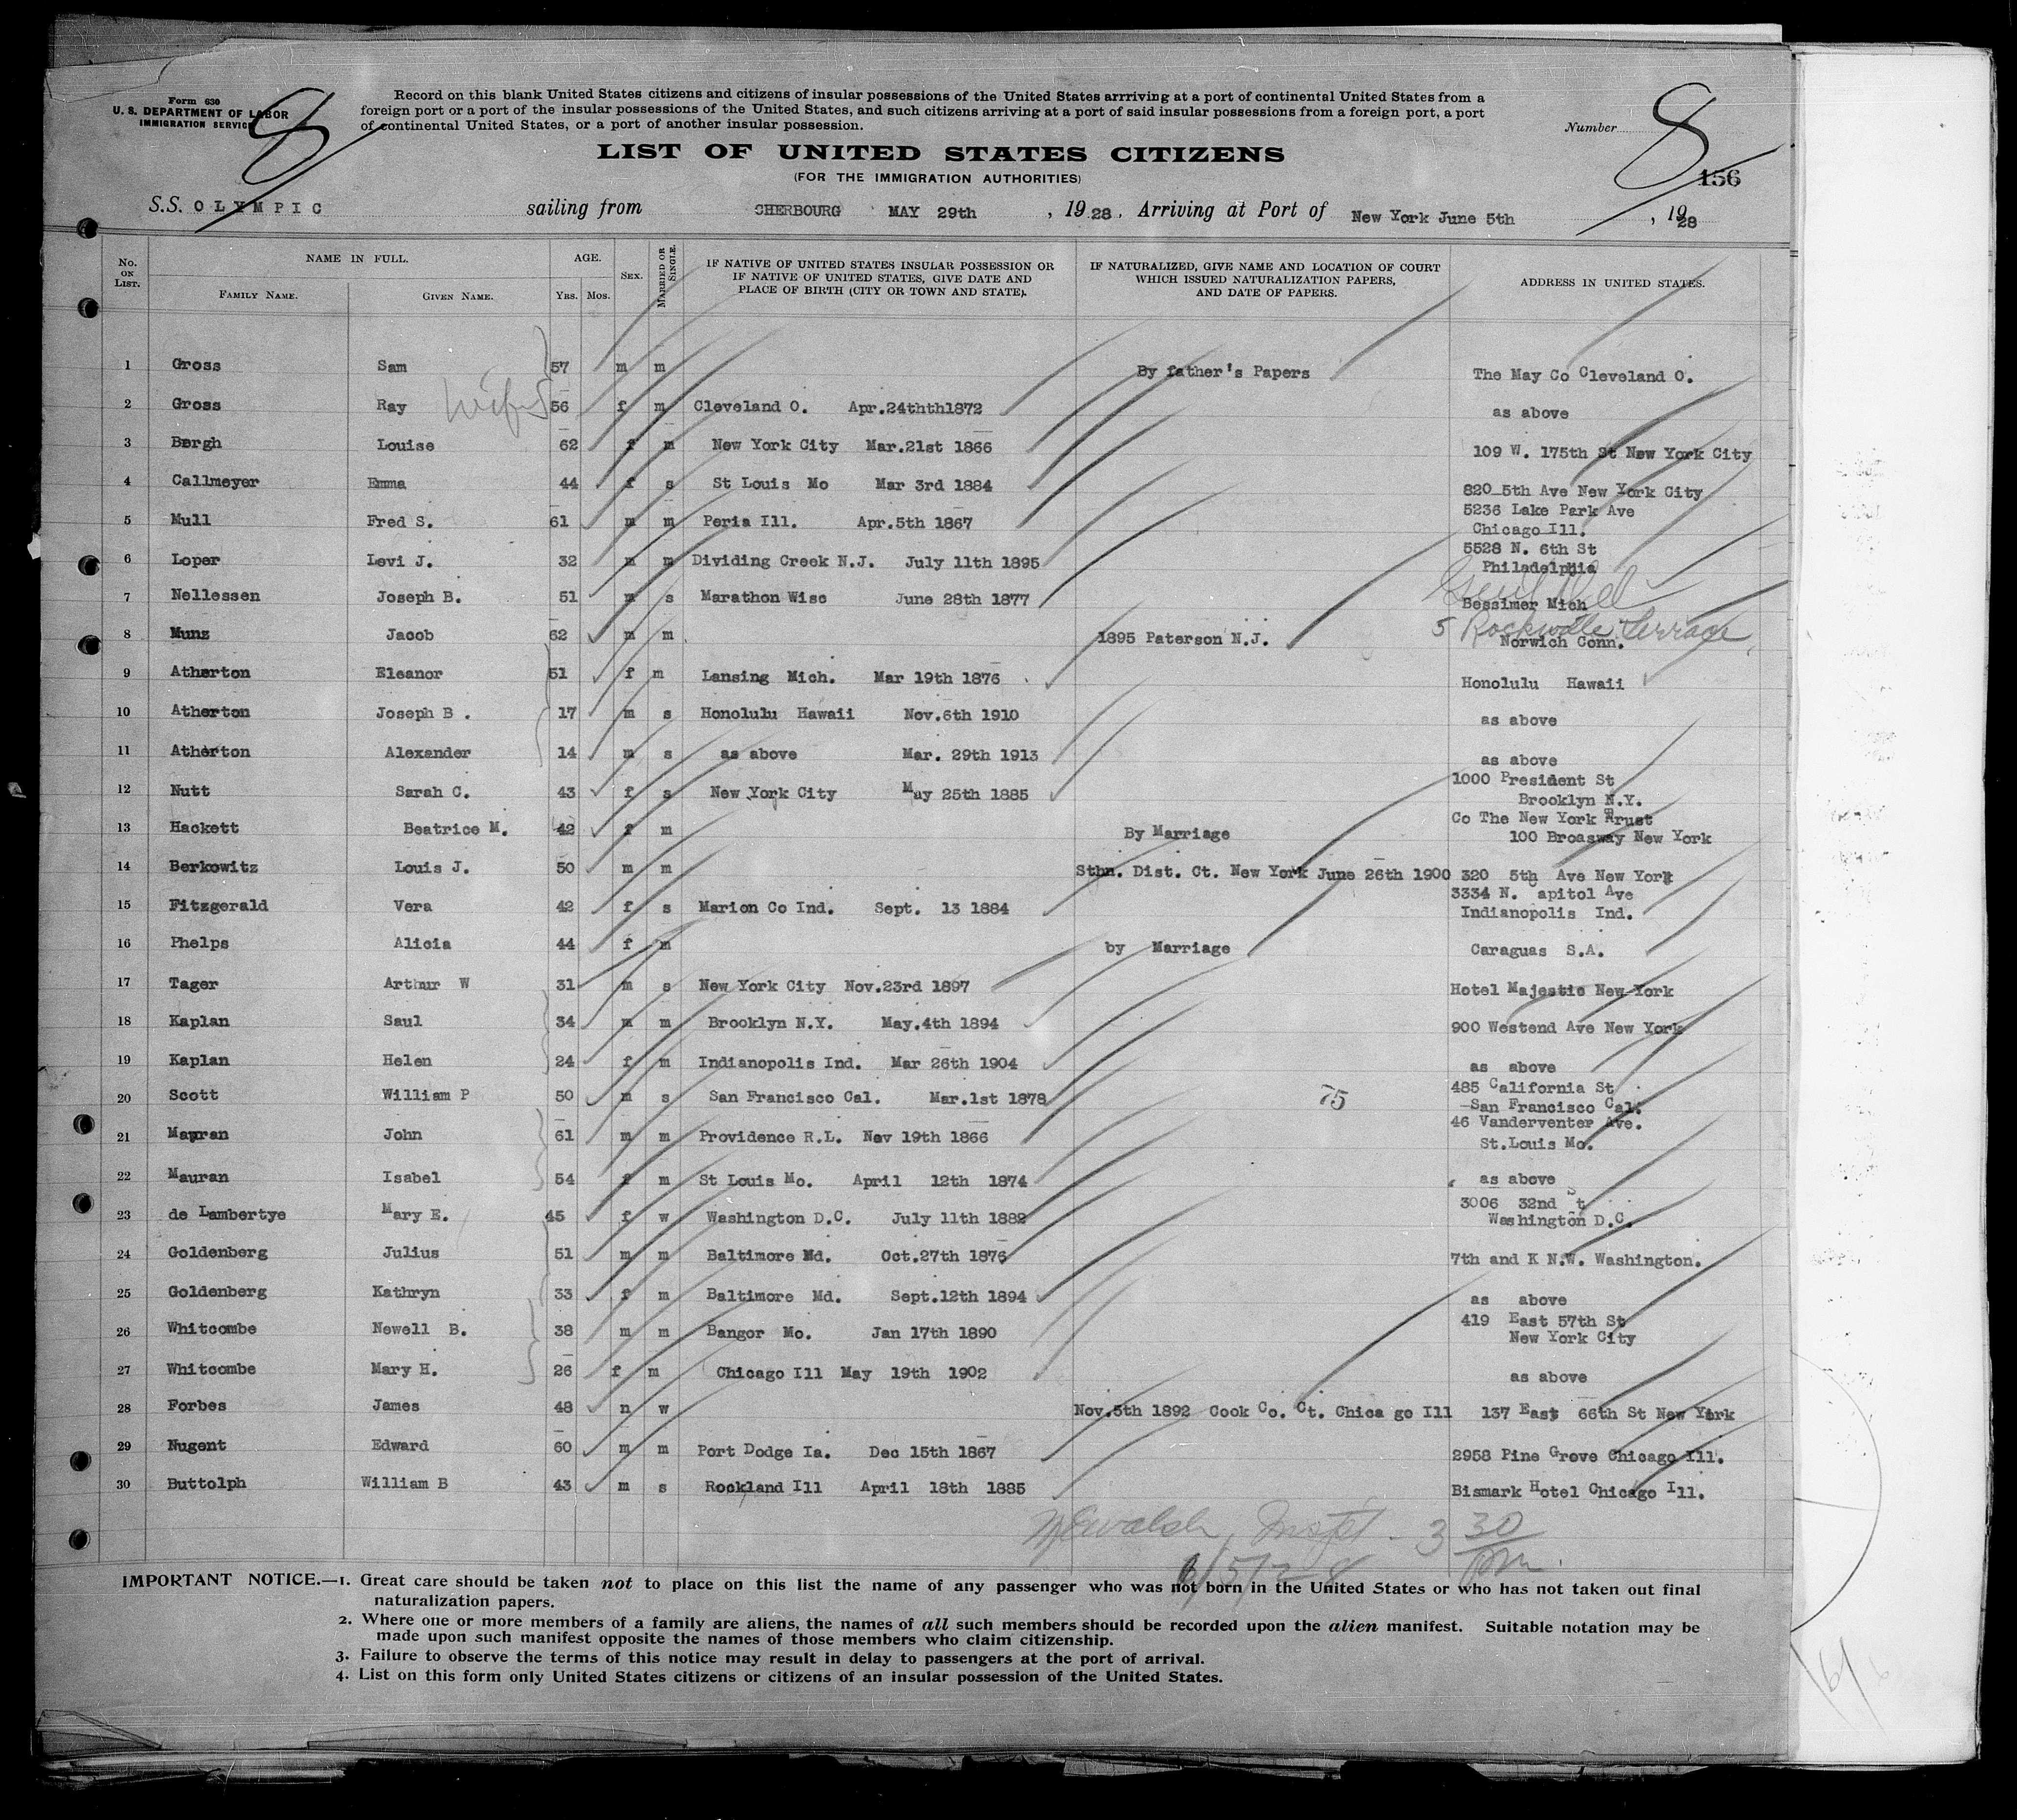 Form 630
U. S. DEPARTMENT OF LABOR
IMMIGRATION SERVICE
8
Record on this blank United States citizens and citizens of insular possessions of the United States arrriving at a port of continental United States from a
foreign port or a port of the insular possessions of the United States, and such citizens arriving at a port of said insular possessions from a foreign port, a port
of continental United States, or a port of another insular possession.
Number 8
156
LIST OF UNITED STATES CITIZENS
(FOR THE IMMIGRATION AUTHORITIES)
S.S. OLYMPIC sailing from CHERBOURG MAY 29th , 19 28 , Arriving at Port of New York June 5th , 19 28
No. ON LIST. NAME IN FULL. FAMILY NAME. GIVEN NAME. AGE. Yrs. Mos. SEX. MARRIED OR SINGLE. IF NATIVE OF UNITED STATES INSULAR POSSESSION OR IF NATIVE OF UNITED STATES, GIVE DATE AND PLACE OF BIRTH (CITY OR TOWN AND STATE). IF NATURALIZED, GIVE NAME AND LOCATION OF COURT WHICH ISSUED NATURALIZATION PAPERS, AND DATE OF PAPERS. ADDRESS IN UNITED STATES.
1 Gross Sam 57 m m By father's Papers The May Co Cleveland O.
2 Gross Ray wife 56 f m Cleveland O. Apr.24thth1872 as above
3 Bergh Louise 62 f m New York City Mar.21st 1866 109 W. 175th St New York City
4 Callmeyer Emma 44 f s St Louis Mo Mar 3rd 1884 820 5th Ave New York City
5 Mull Fred S. 61 m m Peria Ill. Apr.5th 1867 5236 Lake Park Ave Chicago Ill.
6 Loper Levi J. 32 m m Dividing Creek N.J. July 11th 1895 5528 N. 6th St Philadelphia
7 Nellessen Joseph B. 51 m s Marathon Wisc June 28th 1877 Bessimer Mich
8 Munz Jacob 62 m m 1895 Paterson N.J. 5 Rockwell Terrace Norwich Conn.
9 Atherton Eleanor 51 f m Lansing Mich. Mar 19th 1876 Honolulu Hawaii
10 Atherton Joseph B . 17 m s Honolulu Hawaii Nov.6th 1910 as above
11 Atherton Alexander 14 m s as above Mar. 29th 1913 as above
12 Nutt Sarah C. 43 f s New York City May 25th 1885 1000 President St Brooklyn N.Y.
13 Hackett Beatrice M. 42 f m By Marriage Co The New York Trust 100 Broasway New York
14 Berkowitz Louis J. 50 m m Sthn. Dist. Ct. New York June 26th 1900 320 5th Ave New York
15 Fitzgerald Vera 42 f s Marion Co Ind. Sept. 13 1884 3334 N. Capitol Ave Indianopolis Ind.
16 Phelps Alicia 44 f m by Marriage Caraguas S.A.
17 Tager Arthur W 31 m s New York City Nov.23rd 1897 Hotel Majestic New York
18 Kaplan Saul 34 m m Brooklyn N.Y. May.4th 1894 900 Westend Ave New York
19 Kaplan Helen 24 f m Indianopolis Ind. Mar 26th 1904 as above
20 Scott William P 50 m s San Francisco Cal. Mar.1st 1878 75 485 California St San Francisco Cal.
21 Mauran John 61 m m Providence R.L. Nov 19th 1866 46 Vanderventer Ave. St.Louis Mo.
22 Mauran Isabel 54 f m St Louis Mo. April 12th 1874 as above
23 de Lambertye Mary E. 45 f w Washington D.C. July 11th 1882 3006 32nd St Washington D.C.
24 Goldenberg Julius 51 m m Baltimore Md. Oct.27th 1876 7th and K N.W. Washington.
25 Goldenberg Kathryn 33 f m Baltimore Md. Sept.12th 1894 as above
26 Whitcombe Newell B. 38 m m Bangor Mo. Jan 17th 1890 419 East 57th St New York City
27 Whitcombe Mary H. 26 f m Chicago Ill May 19th 1902 as above
28 Forbes James 48 n w Nov.5th 1892 Cook Co. Ct. Chica go Ill 137 East 66th St New York
29 Nugent Edward 60 m m Port Dodge Ia. Dec 15th 1867 2958 Pine Grove Chicago Ill.
30 Buttolph William B 43 m s Rockland Ill April 18th 1885 Bismark Hotel Chicago Ill.
Inspt - 3 30 pm
6/5/28
IMPORTANT NOTICE.—1. Great care should be taken not to place on this list the name of any passenger who was not born in the United States or who has not taken out final
naturalization papers.
2. Where one or more members of a family are aliens, the names of all such members should be recorded upon the alien manifest. Suitable notation may be
made upon such manifest opposite the names of those members who claim citizenship.
3. Failure to observe the terms of this notice may result in delay to passengers at the port of arrival.
4. List on this form only United States citizens or citizens of an insular possession of the United States.